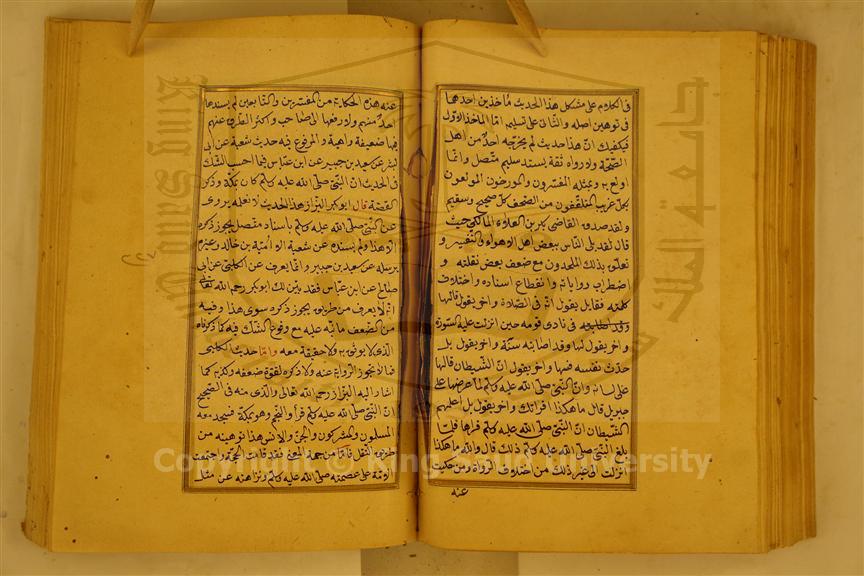 في الكلام على مشكل هذا الحديث مأخذين احدهما
في توهين اصله والثاني على تسليمه اما المأخذ الاول
فيكفيك ان هذا حديث لم يخرجه احد من اهل
الصحة ولا رواه ثقة بسند سليم متصل وانما
اولع به وبمثله المفسرون والمورخون المولعون
بكل غريب المتلقفون من الصحف كل صحيح وسقيم
ولقد صدق القاضي بكر بن العلاء المالكي حيث
قال لقد بلي الناس ببعض اهل الاهواء والتفسير و
تعلق بذلك الملحدون مع ضعف بعض نقلته و
اضطراب رواياته وانقطاع اسناده واختلاف
كلمته فقائل يقول انه في الصلاة واخر يقول قالها
في نادي قومه حين انزلت عليه السورة
واخر يقول قالها وقد اصابته سنة واخر يقول بل
حدث نفسه فسها واخر يقول ان الشيطان قالها
على لسانه وان النبي صلى الله عليه وسلم لما عرضها على
جبريل قال ما هكذا اقرأتك واخر يقول بل اعلمهم
الشيطان ان النبي صلى الله عليه وسلم قرأها فلما
بلغ النبي صلى الله عليه وسلم ذلك قال والله ما هكذا
انزلت الى غير ذلك من اختلاف الرواة ومن حكيت
عنه
عنه هذه الحكاية من المفسرين والتابعين لم يسندها
احد منهم ولا رفعها الى صاحب واكثر الطرق عنهم
فيها ضعيفة واهية والمرفوع فيه حديث شعبة عن ابي
بشر عن سعيد بن جبير عن ابن عباس فيما احسب الشك
في الحديث ان النبي صلى الله عليه وسلم كان بمكة وذكر
القصة قال ابو بكر البزار هذا الحديث لا نعلمه يروى
عن النبي صلى الله عليه وسلم باسناد متصل يجوز ذكره
الا هذا ولم يسنده عن شعبة الا امية بن خالد وغيره
يرسله عن سعيد بن جبير وانما يعرف عن الكلبي عن ابي
صالح عن ابن عباس فقد بين لك ابو بكر رحمه الله تعالى
انه لا يعرف من طريق يجوز ذكره سوى هذا وفيه
من الضعف ما نبه عليه مع وقوع الشك فيه كما ذكرناه
الذي لا يوثق به ولا حقيقة معه واما حديث الكلبي
فما لا يجوز الرواية عنه ولا ذكره لقوة ضعفه وكذبه كما
اشار اليه البزار رحمه الله تعالى والذي منه في الصحيح
ان النبي صلى الله عليه وسلم قرأ والنجم وهو بمكة فسجد معه
المسلمون والمشركون والجن والانس هذا توهينه من
طريق النقل فاما من جهة المعنى فقد قامت الحجة واجمعت
الامة على عصمته صلى الله عليه وسلم ونزاهته عن مثل
King Saud University
جامعة الملك سعود
Copyright © King Saud University